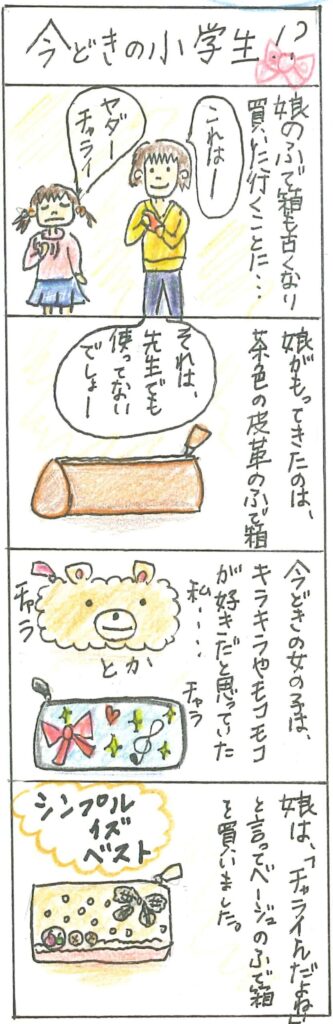 今どきの小学生!?
娘のふで箱も古くなり
買いに行くことに…
これはー
ヤダー
チャライ
娘がもってきたのは、
茶色の皮革のふで箱
それは、
先生でも
使ってない
でしょー
今どきの女の子は、
キラキラやモコモコ
が好きだと思っていた
私‥‥
チャラ
とか
チャラ
娘は、「チャライんだよね」
と言ってベージュのふで箱
を買いました。
シンプル
イズ
ベスト